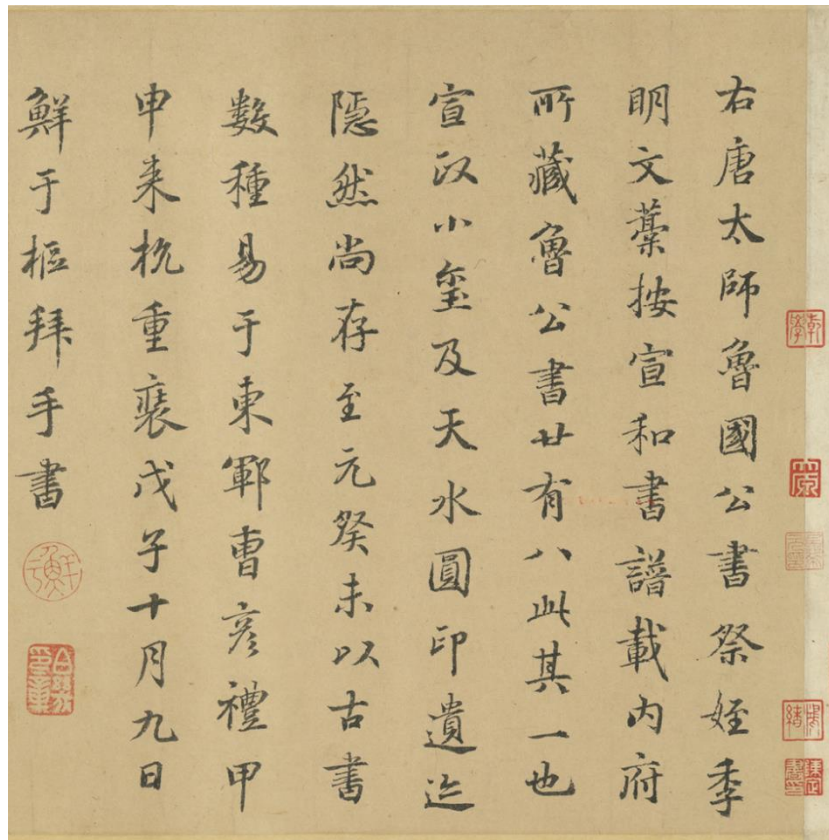 右唐太師魯國公書祭姪季
明文藁按宣和書譜載内府
所藏魯公書廿有八此其一也
宣政小璽及天水圓印遺迹
隱然尚存至元癸未以古書
數種易于東鄆曹彦禮甲
申来杭重裝戊子十月九日
鮮于樞拜手書